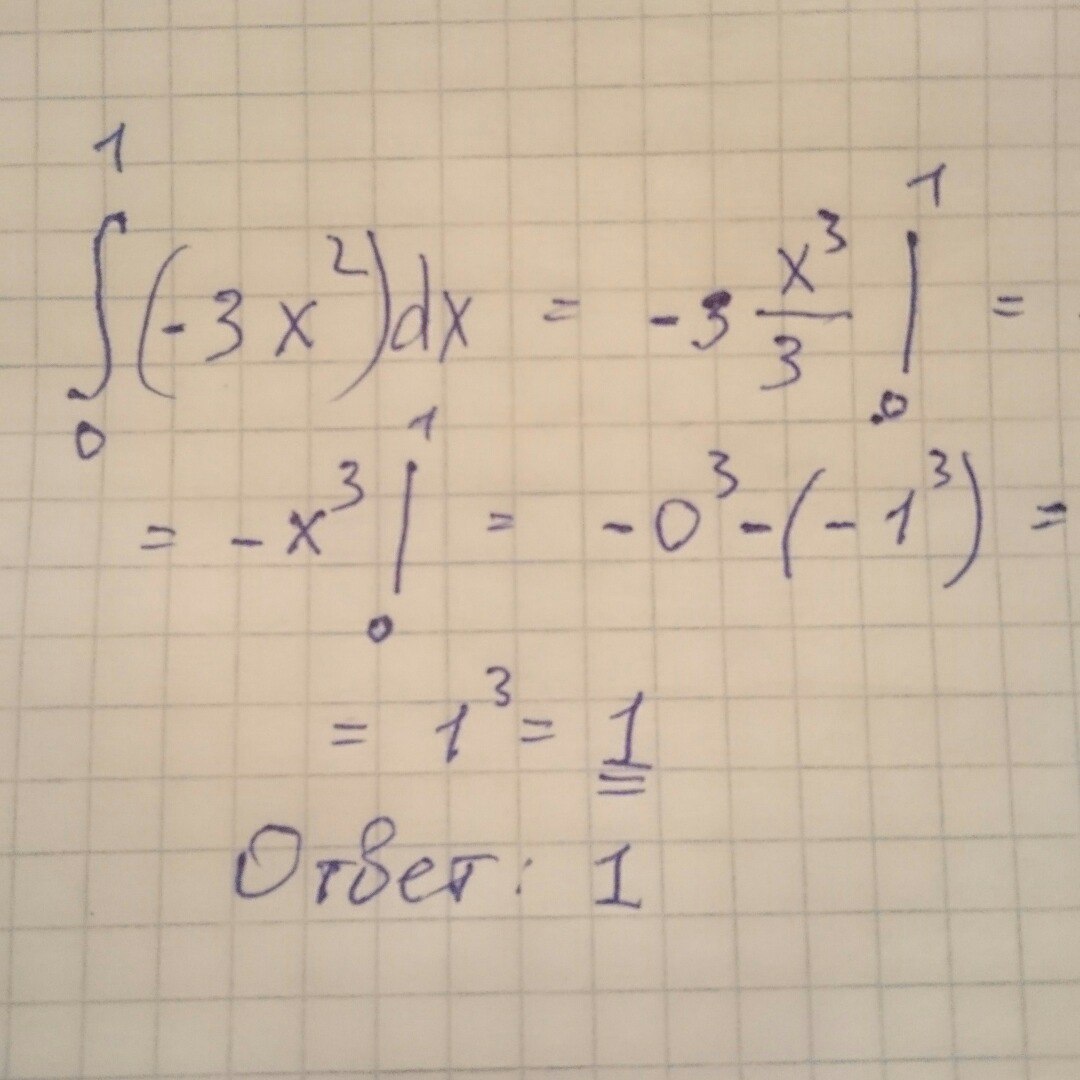 ∫₀¹ (-3x²)dx = -3 x³/3 |₀¹ =
= -x³ |₀¹ = -0³-(-1³) =
= 1³ = 1
Ответ: 1